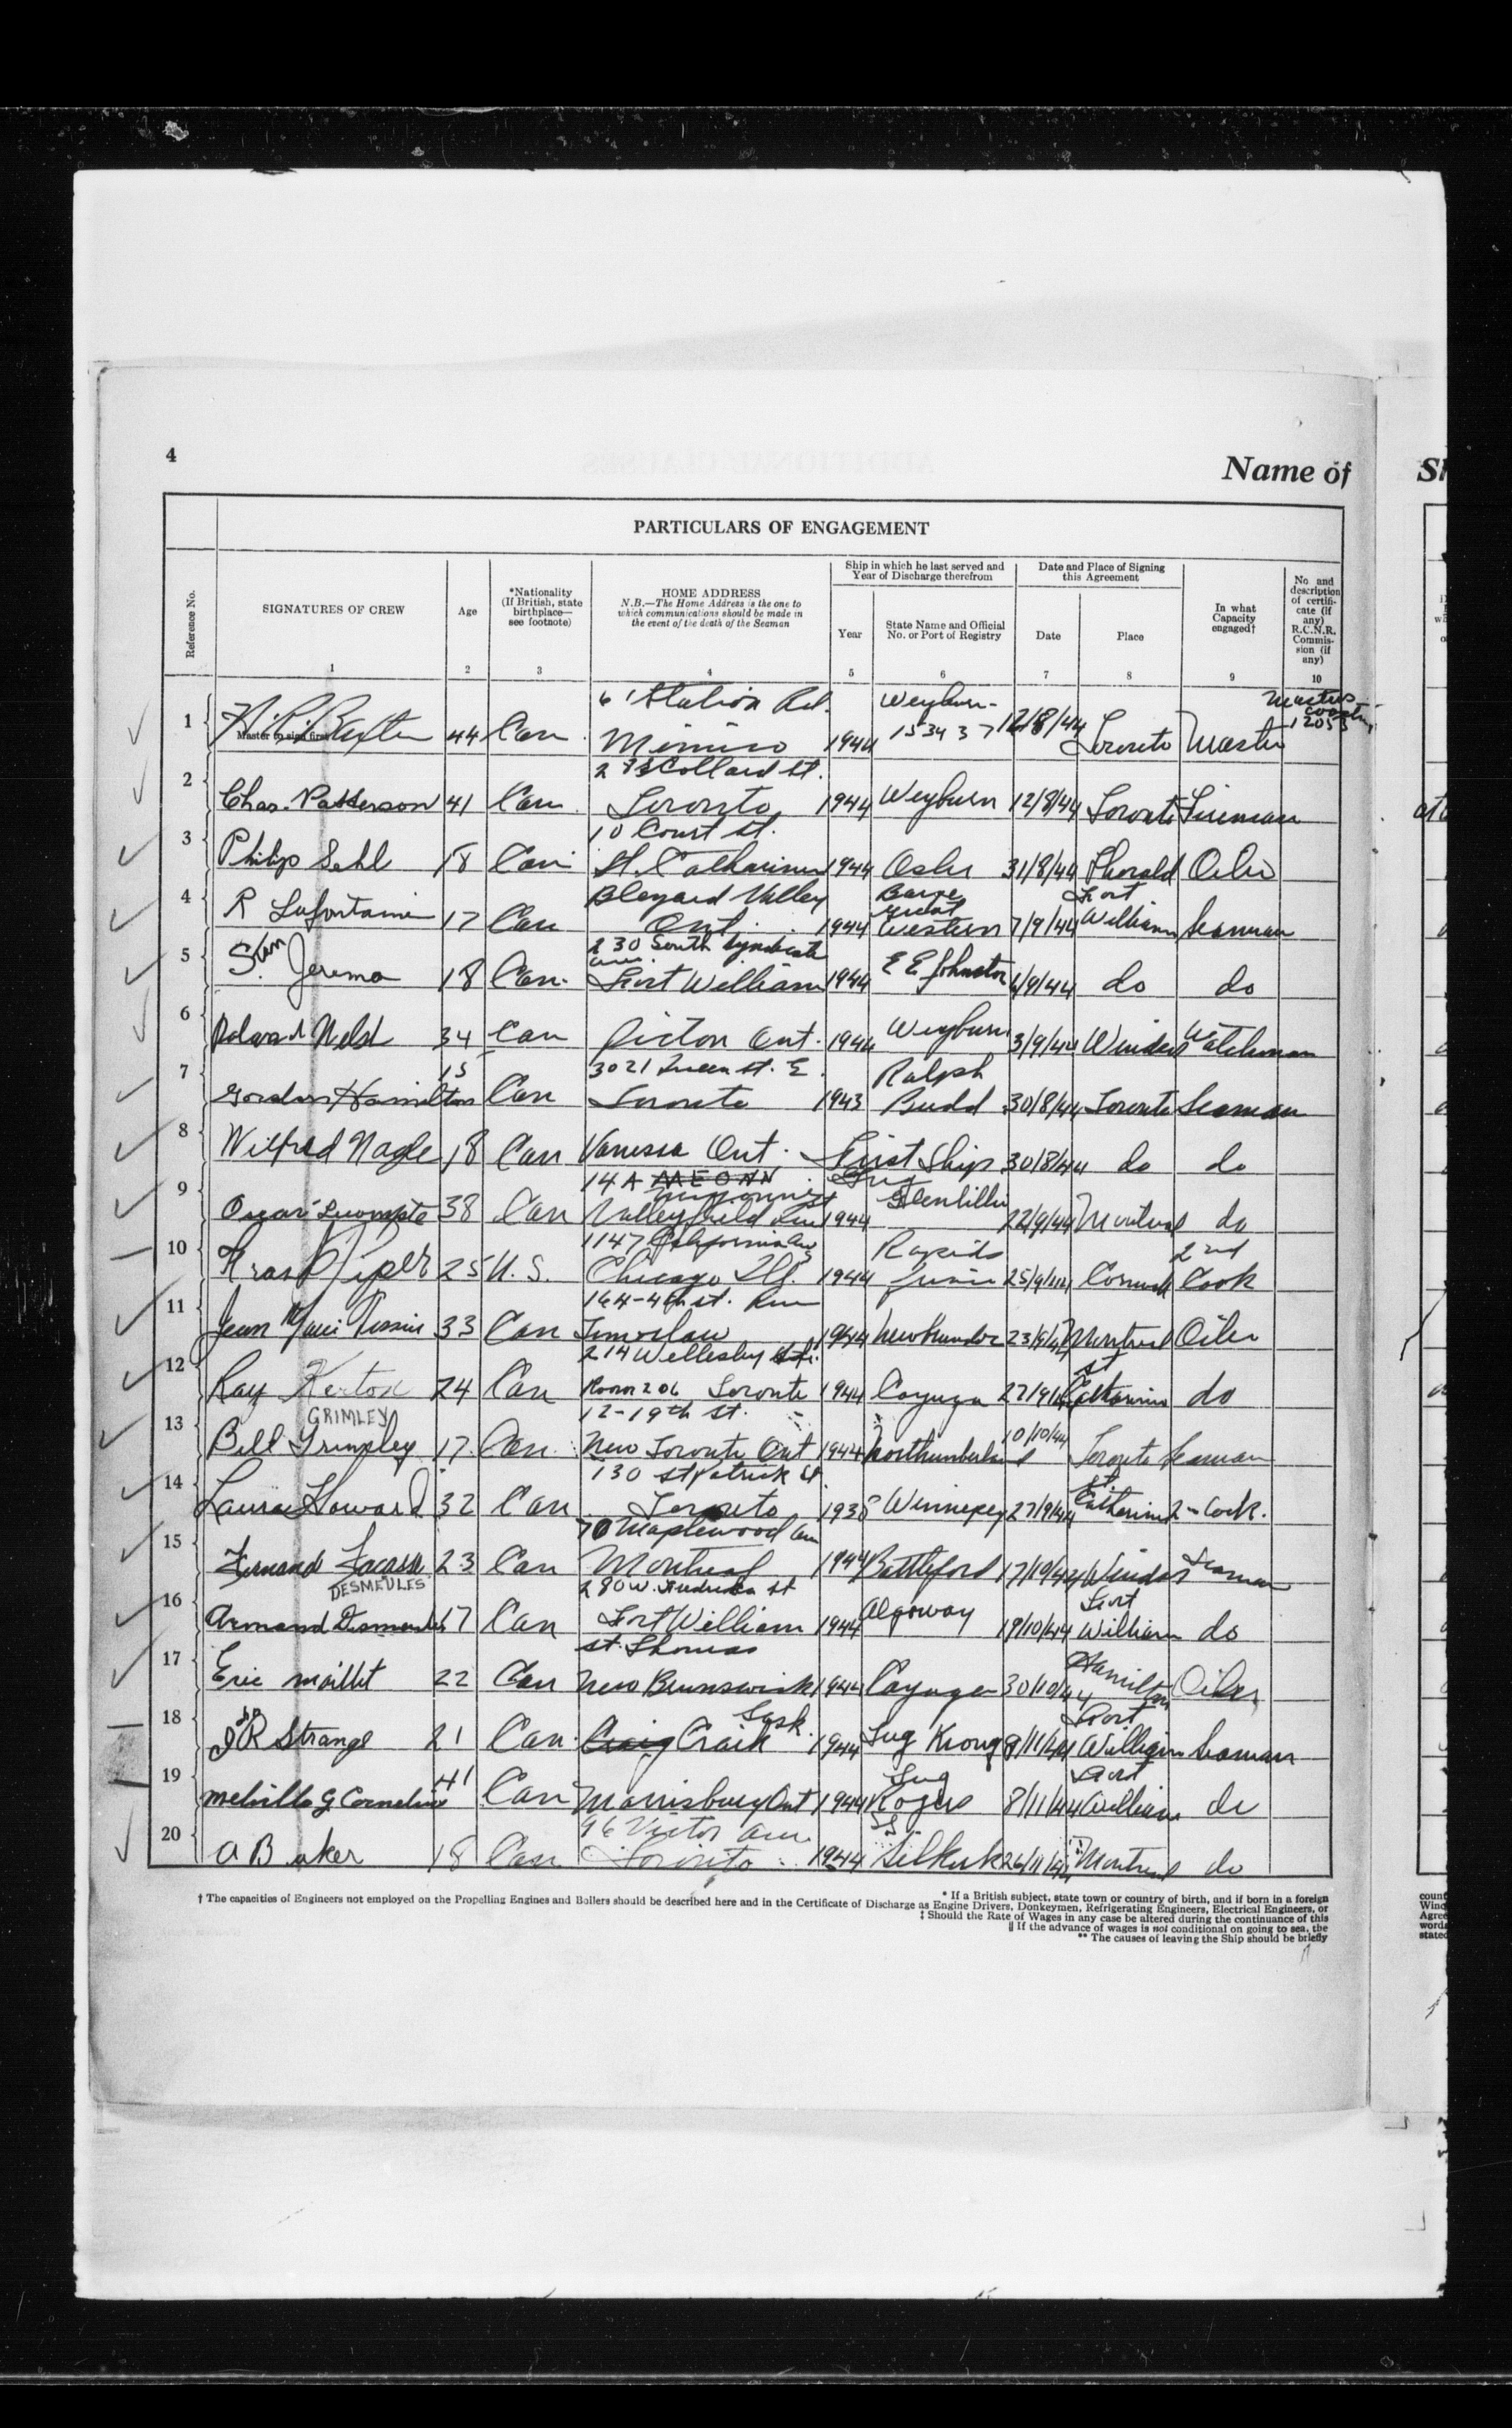 4
Name of
PARTICULARS OF ENGAGEMENT
Reference No.
SIGNATURES OF CREW
Age
*Nationality (If British, state birthplace— see footnote)
HOME ADDRESS
N.B.—The Home Address is the one to which communications should be made in the event of the death of the Seaman
Ship in which he last served and Year of Discharge therefrom
Year
State Name and Official No. or Port of Registry
Date and Place of Signing this Agreement
Date
Place
In what Capacity engaged†
No and description of certificate (if any) R.C.N.R. Commission (if any)
1 2 3 4 5 6 7 8 9 10
1 Master to sign first 44 Can. 61 Station Rd. Mimico 1944 Weyburn 153437 12/8/44 Toronto Master Masters
2 Chas. Patterson 41 Can. Collard St. Toronto 1944 Weyburn 12/8/44 Toronto Fireman
3 Philip Sehl 18 Can 10 Court St. St. Catharines 1944 Osler 31/8/44 Thorold Oiler
4 R Lafontaine 17 Can Blezard Valley Ont. 1944 Barge Great Western 7/9/44 Fort William Seaman
5 Stan Jerema 18 Can. 230 South Syndicate Ave. Fort William 1944 E E Johnston /9/44 do do
6 34 Can Picton Ont. 1944 Weyburn 3/9/44 Windsor Watchman
7 Gordon Hamilton 15 Can 3021 Queen St. E. Toronto 1943 Ralph Budd 30/8/44 Toronto Seaman
8 Wilfred Nagle 18 Can Vanessa Ont. First Ship 30/8/44 do do
9 Oscar Lecompte 38 Can 14A Valleyfield Que 1944 Tug Glenlillie 22/9/44 Montreal do
10 Piper 25 U.S. 1147 California Ave Chicago Ill. 1944 Rapids 25/9/44 Cornwall 2nd Cook
11 Jean Marie 33 Can 164-4th St. 1944 23/9/44 Montreal Oiler
12 Ray 24 Can 214 Wellesley St. Room 206 Toronto 1944 Cayuga 27/9/44 St Catharines do
GRIMLEY
13 Bill Grimley 17 Can. 12-19th St. New Toronto Ont 1944 Northumberland 10/10/44 Toronto Seaman
14 Laura Howard 32 Can 130 St Patrick St Toronto 193 Winnipeg 27/9/44 St Catharines 2-Cook.
15 23 Can 70 Maplewood Ave Montreal 1944 Battleford 17/10/44 Windsor Seaman
DESMEULES
16 Armand Desmeules 17 Can 280 W. Frederica St Fort William 1944 Algoway 19/10/44 Fort William do
17 Eric Maillet 22 Can St. Thomas New Brunswick 1944 Cayuga 30/10/44 Hamilton Oiler
18 R Strange 21 Can. Craig Craik Sask. 1944 Tug 8/11/44 Fort William Seaman
19 Melville G Cornelius 41 Can Morrisburg Ont 1944 Tug Rogers 8/11/44 Fort William do
20 A Baker 18 Can 96 Victor Ave. Toronto 1944 SS Selkirk 26/11/44 Montreal do
* If a British subject, state town or country of birth, and if born in a foreign
† The capacities of Engineers not employed on the Propelling Engines and Boilers should be described here and in the Certificate of Discharge as Engine Drivers, Donkeymen, Refrigerating Engineers, Electrical Engineers, or
‡ Should the Rate of Wages in any case be altered during the continuance of this
|| If the advance of wages is not conditional on going to sea, the
** The causes of leaving the Ship should be briefly